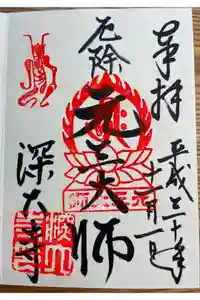 奉拝
平成二十年
十一月一日
厄除
元三大師
深大寺